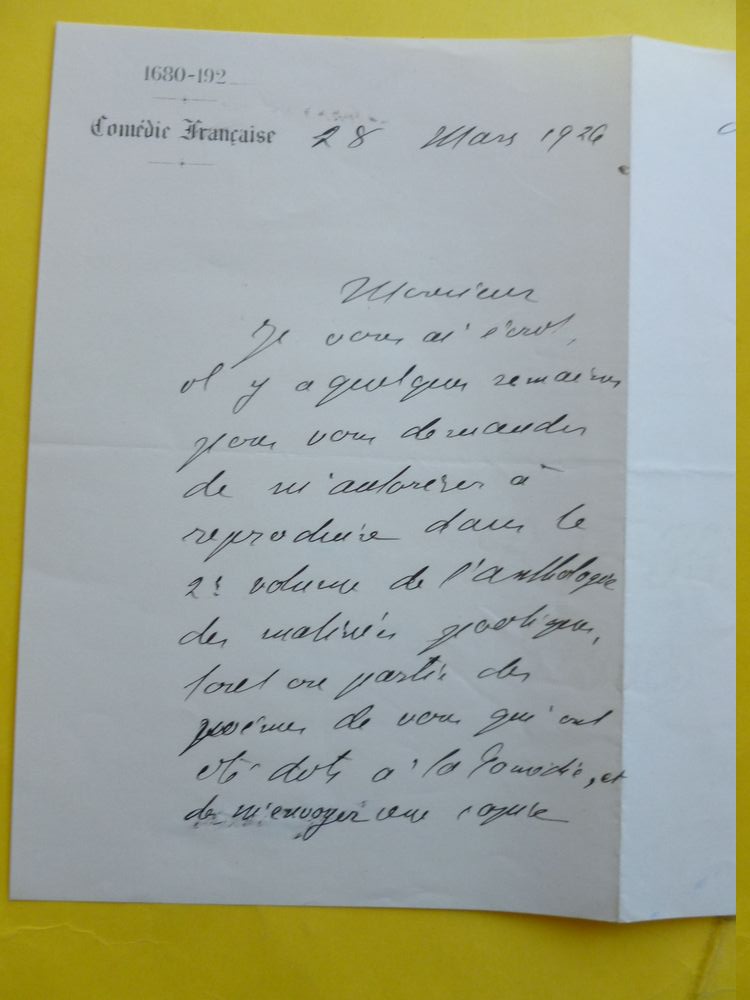 1680-192
Comédie Française
28 Mars 1926
Monsieur
Je vous ai écrit,
il y a quelques semaines
pour vous demander
de m'autoriser à
reproduire dans le
2e volume de l'anthologie
des matinées poétiques,
tout ou partie des
poèmes de vous qui ont
été dits à la Comédie, et
de m'envoyer une copie